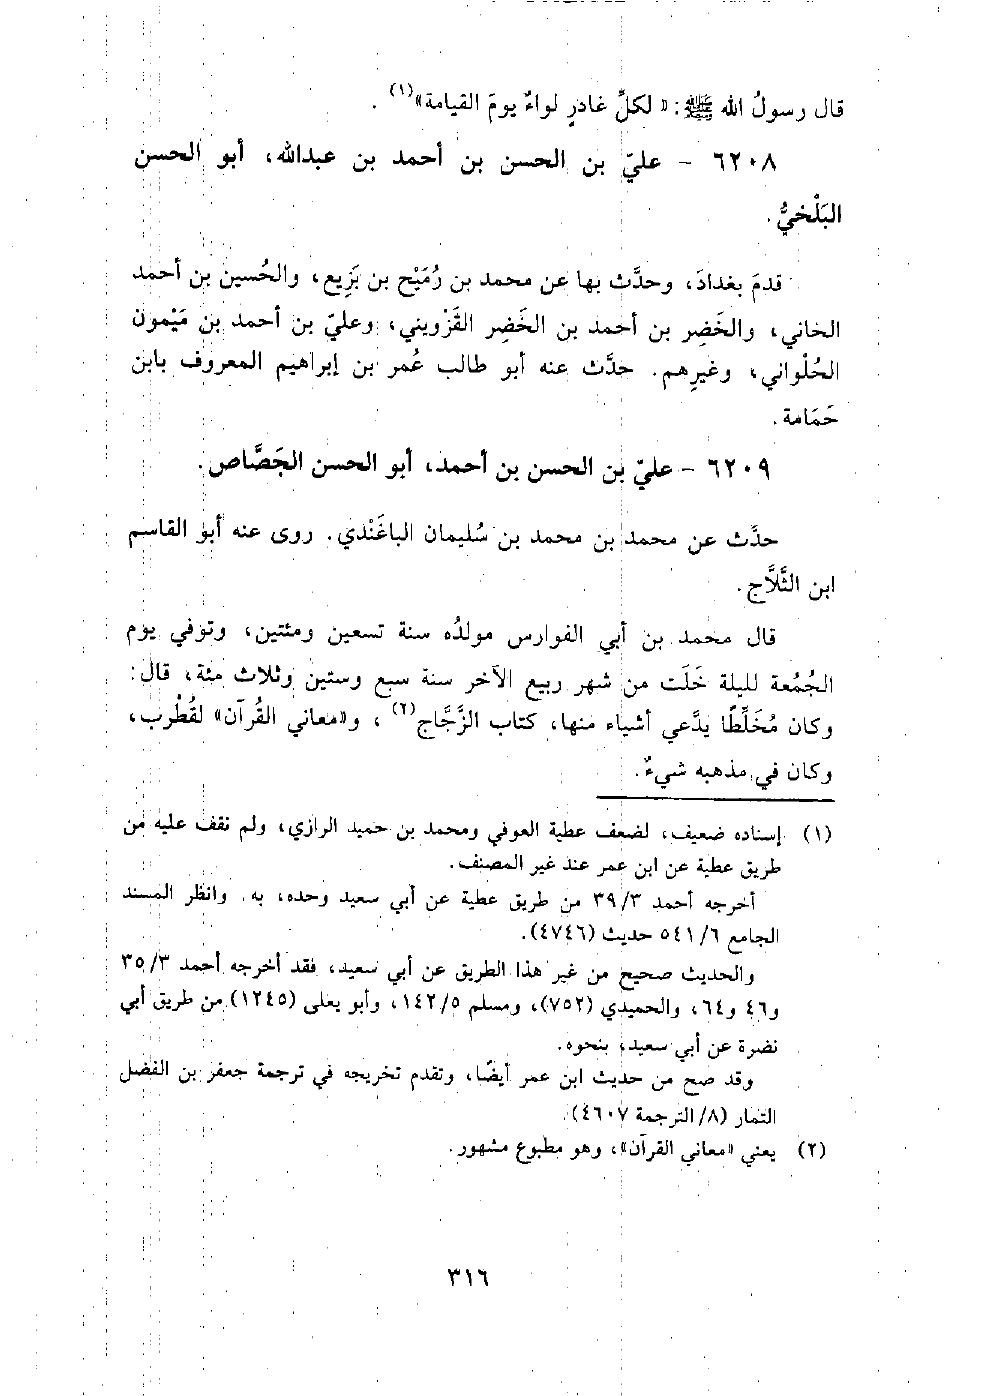 قال رسولُ الله ﷺ: «لكلِّ غادرٍ لواءٌ يومَ القيامة»(١) .
٦٢٠٨ - عليّ بن الحسن بن أحمد بن عبدالله، أبو الحسن
البَلْخيُّ.
قدمَ بغدادَ، وحدَّث بها عن محمد بن رُمَيْح بن بَزِيع، والحُسين بن أحمد
الخاني، والخَضِر بن أحمد بن الخَضِر القَزْويني، وعليّ بن أحمد بن مَيْمون
الحُلْواني، وغيرِهم. حدَّث عنه أبو طالب عُمر بن إبراهيم المعروف بابن
حَمَامة.
٦٢٠٩ - عليّ بن الحسن بن أحمد، أبو الحسن الجَصَّاص.
حدَّث عن محمد بن محمد بن سُليمان الباغَنْدي. روى عنه أبو القاسم
ابن الثَّلاَّج.
قال محمد بن أبي الفوارس مولدُه سنة تسعين ومئتين، وتوفي يوم
الجُمُعة لليلة خَلَت من شهر ربيع الآخر سنة سبع وستين وثلاث مئة، قال:
وكان مُخَلِّطًا يدَّعي أشياء منها، كتاب الزَّجَّاج(٢) ، و«معاني القُرآن» لقُطْرب،
وكان في مذهبه شيءٌ.
(١) إسناده ضعيف، لضعف عطية العوفي ومحمد بن حميد الرازي، ولم نقف عليه من
طريق عطية عن ابن عمر عند غير المصنف.
أخرجه أحمد ٣/ ٣٩ من طريق عطية عن أبي سعيد وحده، به. وانظر المسند
الجامع ٦/ ٥٤١ حديث (٤٧٤٦).
والحديث صحيح من غير هذا الطريق عن أبي سعيد، فقد أخرجه أحمد ٣/ ٣٥
و٤٦ و٦٤، والحميدي (٧٥٢)، ومسلم ٥/ ١٤٢، وأبو يعلى (١٢٤٥) من طريق أبي
نضرة عن أبي سعيد، بنحوه.
وقد صح من حديث ابن عمر أيضًا، وتقدم تخريجه في ترجمة جعفر بن الفضل
التمار (٨/ الترجمة ٤٦٠٧).
(٢) يعني «معاني القرآن»، وهو مطبوع مشهور.
٣١٦